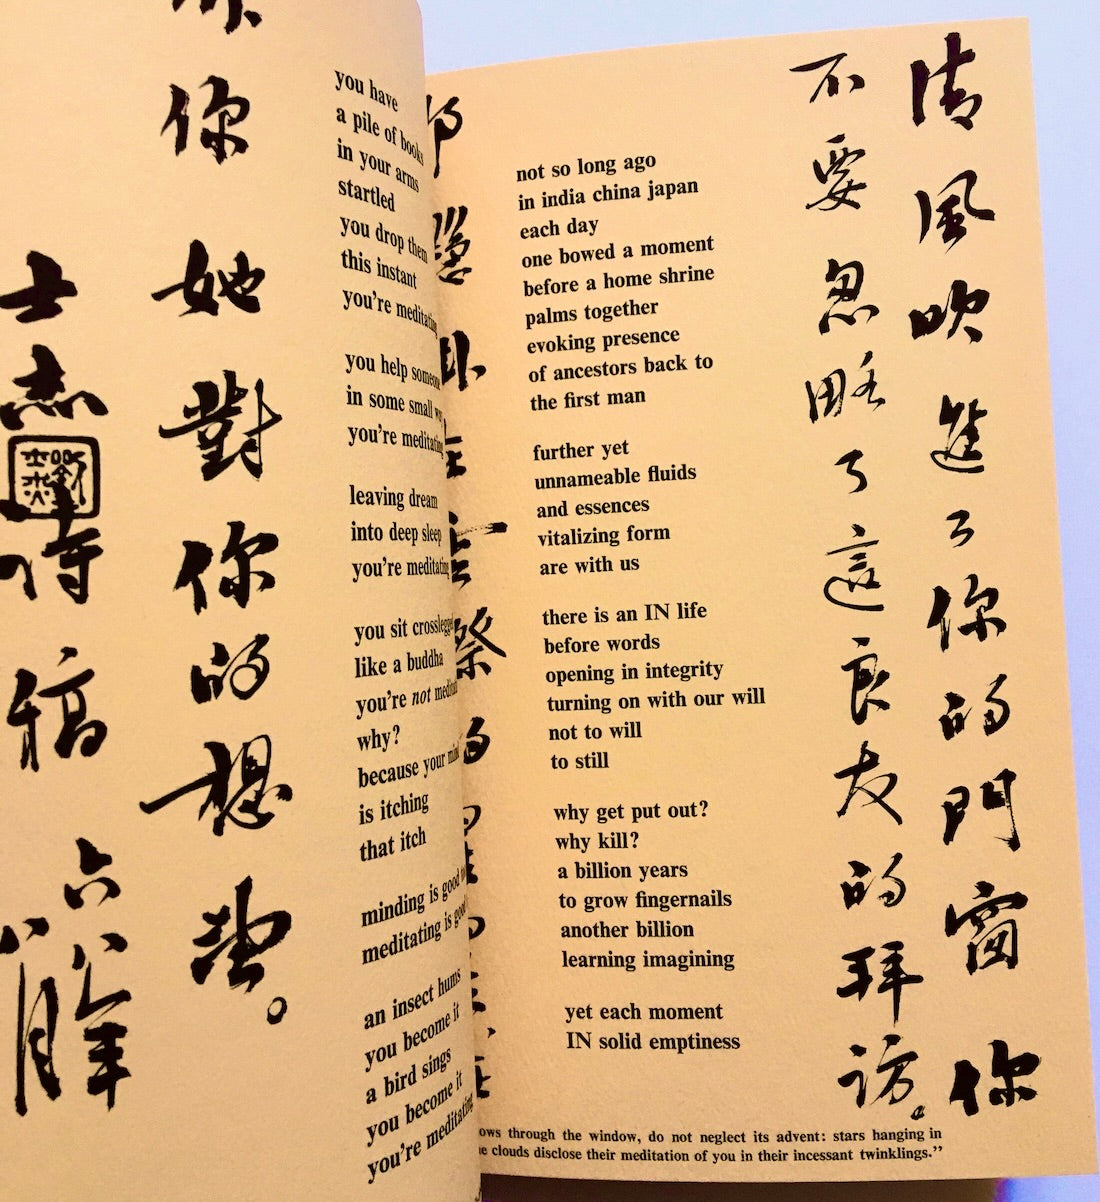 你
她對你的想
士杰
詩稿
六八年
八月
you have
a pile of books
in your arms
startled
you drop them
this instant
you're meditating
you help someone
in some small
you're meditating
leaving dream
into deep sleep
you're meditating
you sit crosslegged
like a buddha
you're not
why?
because your mind
is itching
that itch
minding is good
meditating is good
an insect hums
you become it
a bird sings
you become it
you're meditating
清風吹進了你的門窗 你
不要忽略了這良友的拜訪。
那隱
not so long ago
in india china japan
each day
one bowed a moment
before a home shrine
palms together
evoking presence
of ancestors back to
the first man
further yet
unnameable fluids
and essences
vitalizing form
are with us
there is an IN life
before words
opening in integrity
turning on with our will
not to will
to still
why get put out?
why kill?
a billion years
to grow fingernails
another billion
learning imagining
yet each moment
IN solid emptiness
ows through the window, do not neglect its advent: stars hanging in
clouds disclose their meditation of you in their incessant twinklings.”